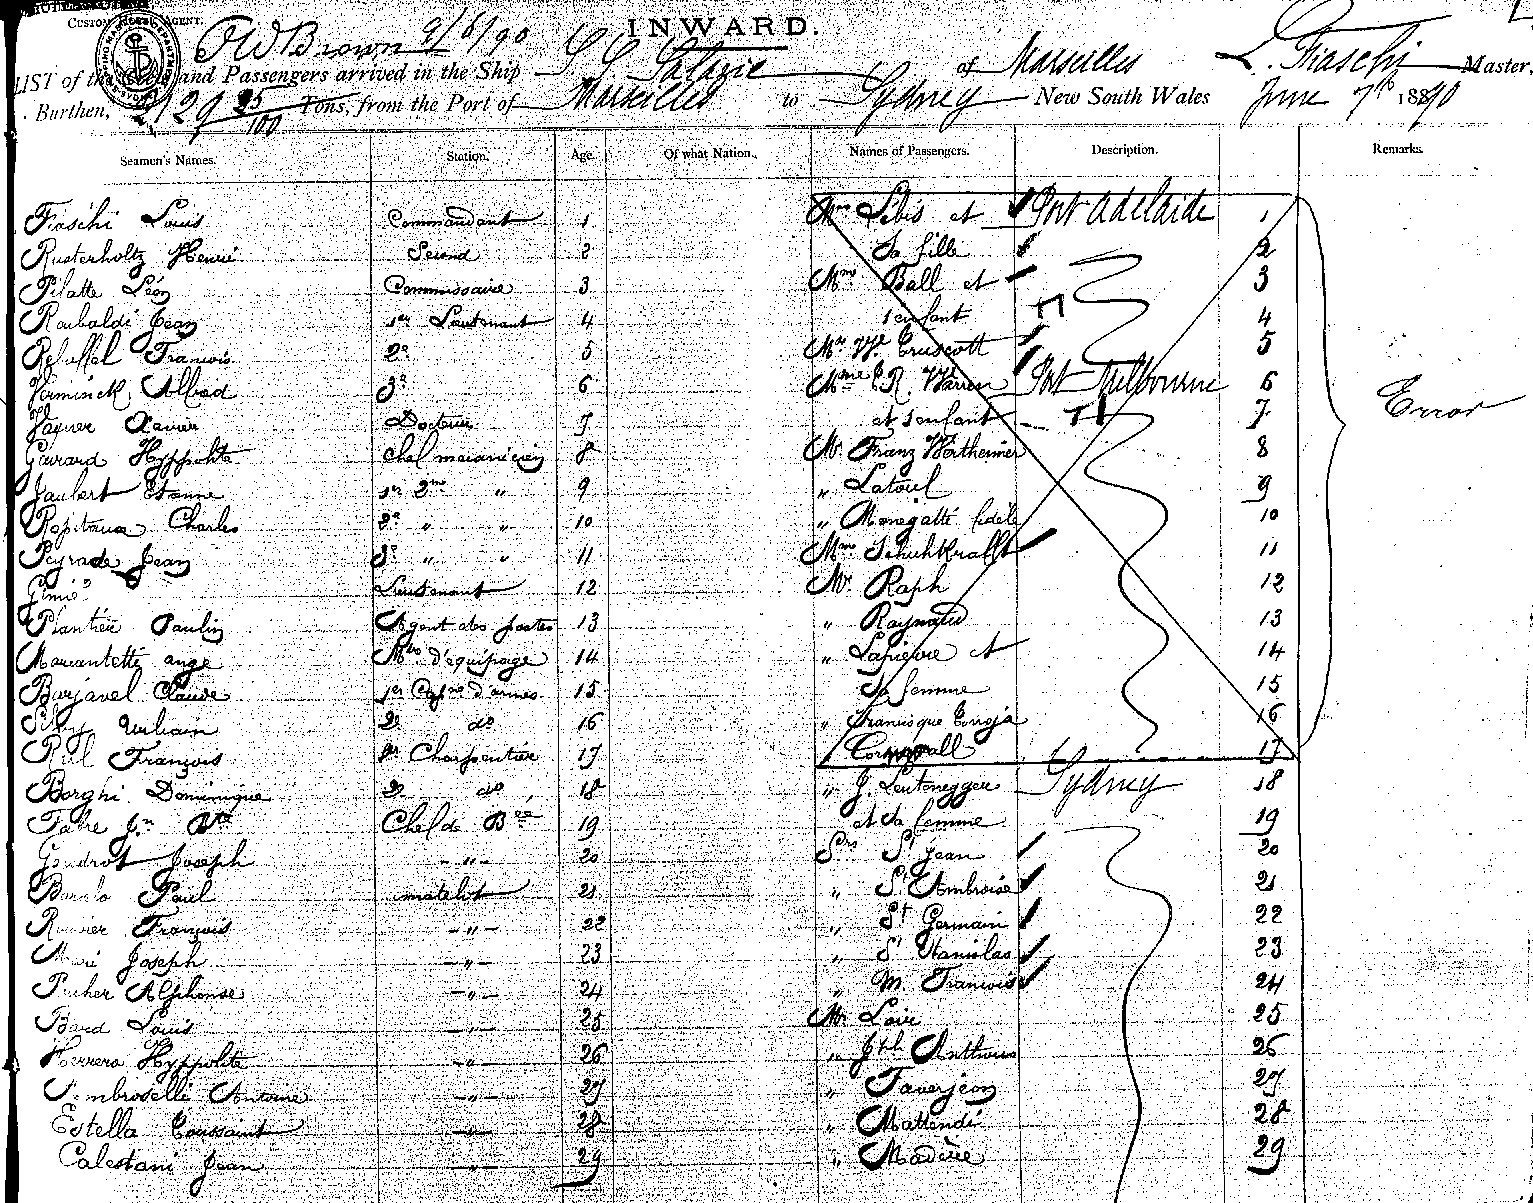 CUSTOM HOUSE AGENT.
INWARD.
F W Brown 9/6/90
LIST of the Crew and Passengers arrived in the Ship S S Salazie of Marseilles L. Fiaschi Master,
Burthen, 2129 25/100 Tons, from the Port of Marseilles to Sydney New South Wales June 7th 1890
Seamen's Names. Station. Age. Of what Nation. Names of Passengers. Description. Remarks.
Fiaschi Louis Commandant 1 Mme Lebis et Port Adelaide 1
Rusterholtz Henri Second 2 Sa fille 2
Pilatte Léon Commissaire 3 Mme Ball et 3
Raibaldi Jean 1er Lieutenant 4 1 enfant 4
Rebuffel François 2e 5 Mr W. Truscott 5
Verminck Alfred 3e 6 Mme E. R. Warren Port Melbourne 6
Vagner Xavier Docteur 7 et 1 enfant 7
Error
Gairard Hyppolite Chef mécanicien 8 Mr Franz Wertheimer 8
Jaubert Etienne 1er 2me " 9 " Latouel 9
Charles 2e " " 10 " Menegatti fidèle 10
Peyrade Jean 3e " " 11 Mme Schuhkrafft 11
Génié Lieutenant 12 Mr. Raph 12
Plantier Paulin Agent des postes 13 " Raynaud 13
Mariantetti ange Mtre d'équipage 14 " Lapierre et 14
Barjavel Claude 1er Capne d'armes 15 Sa femme 15
Urbain 2e do 16 " Francisque 16
François 1er Charpentier 17 Cornwall 17
Borghi Dominique 2e do 18 " J. Leutenegger Sydney 18
Fabre Jn Bte Chef de Bée 19 et sa femme 19
Goudrot Joseph -"- 20 Srs St Jean 20
Paul matelot 21 " St Ambroise 21
François -"- 22 " St Germain 22
Joseph -"- 23 " St Stanislas 23
Alphonse -"- 24 " M. François 24
Bard Louis -"- 25 Mr. Loir 25
Herrero Hyppolite -"- 26 " Jph Anthous 26
Ambroselle Antoine -"- 27 " Taverjeon 27
Estella Toussaint -"- 28 " Mattendi 28
Calestani Jean -"- 29 " Madère 29